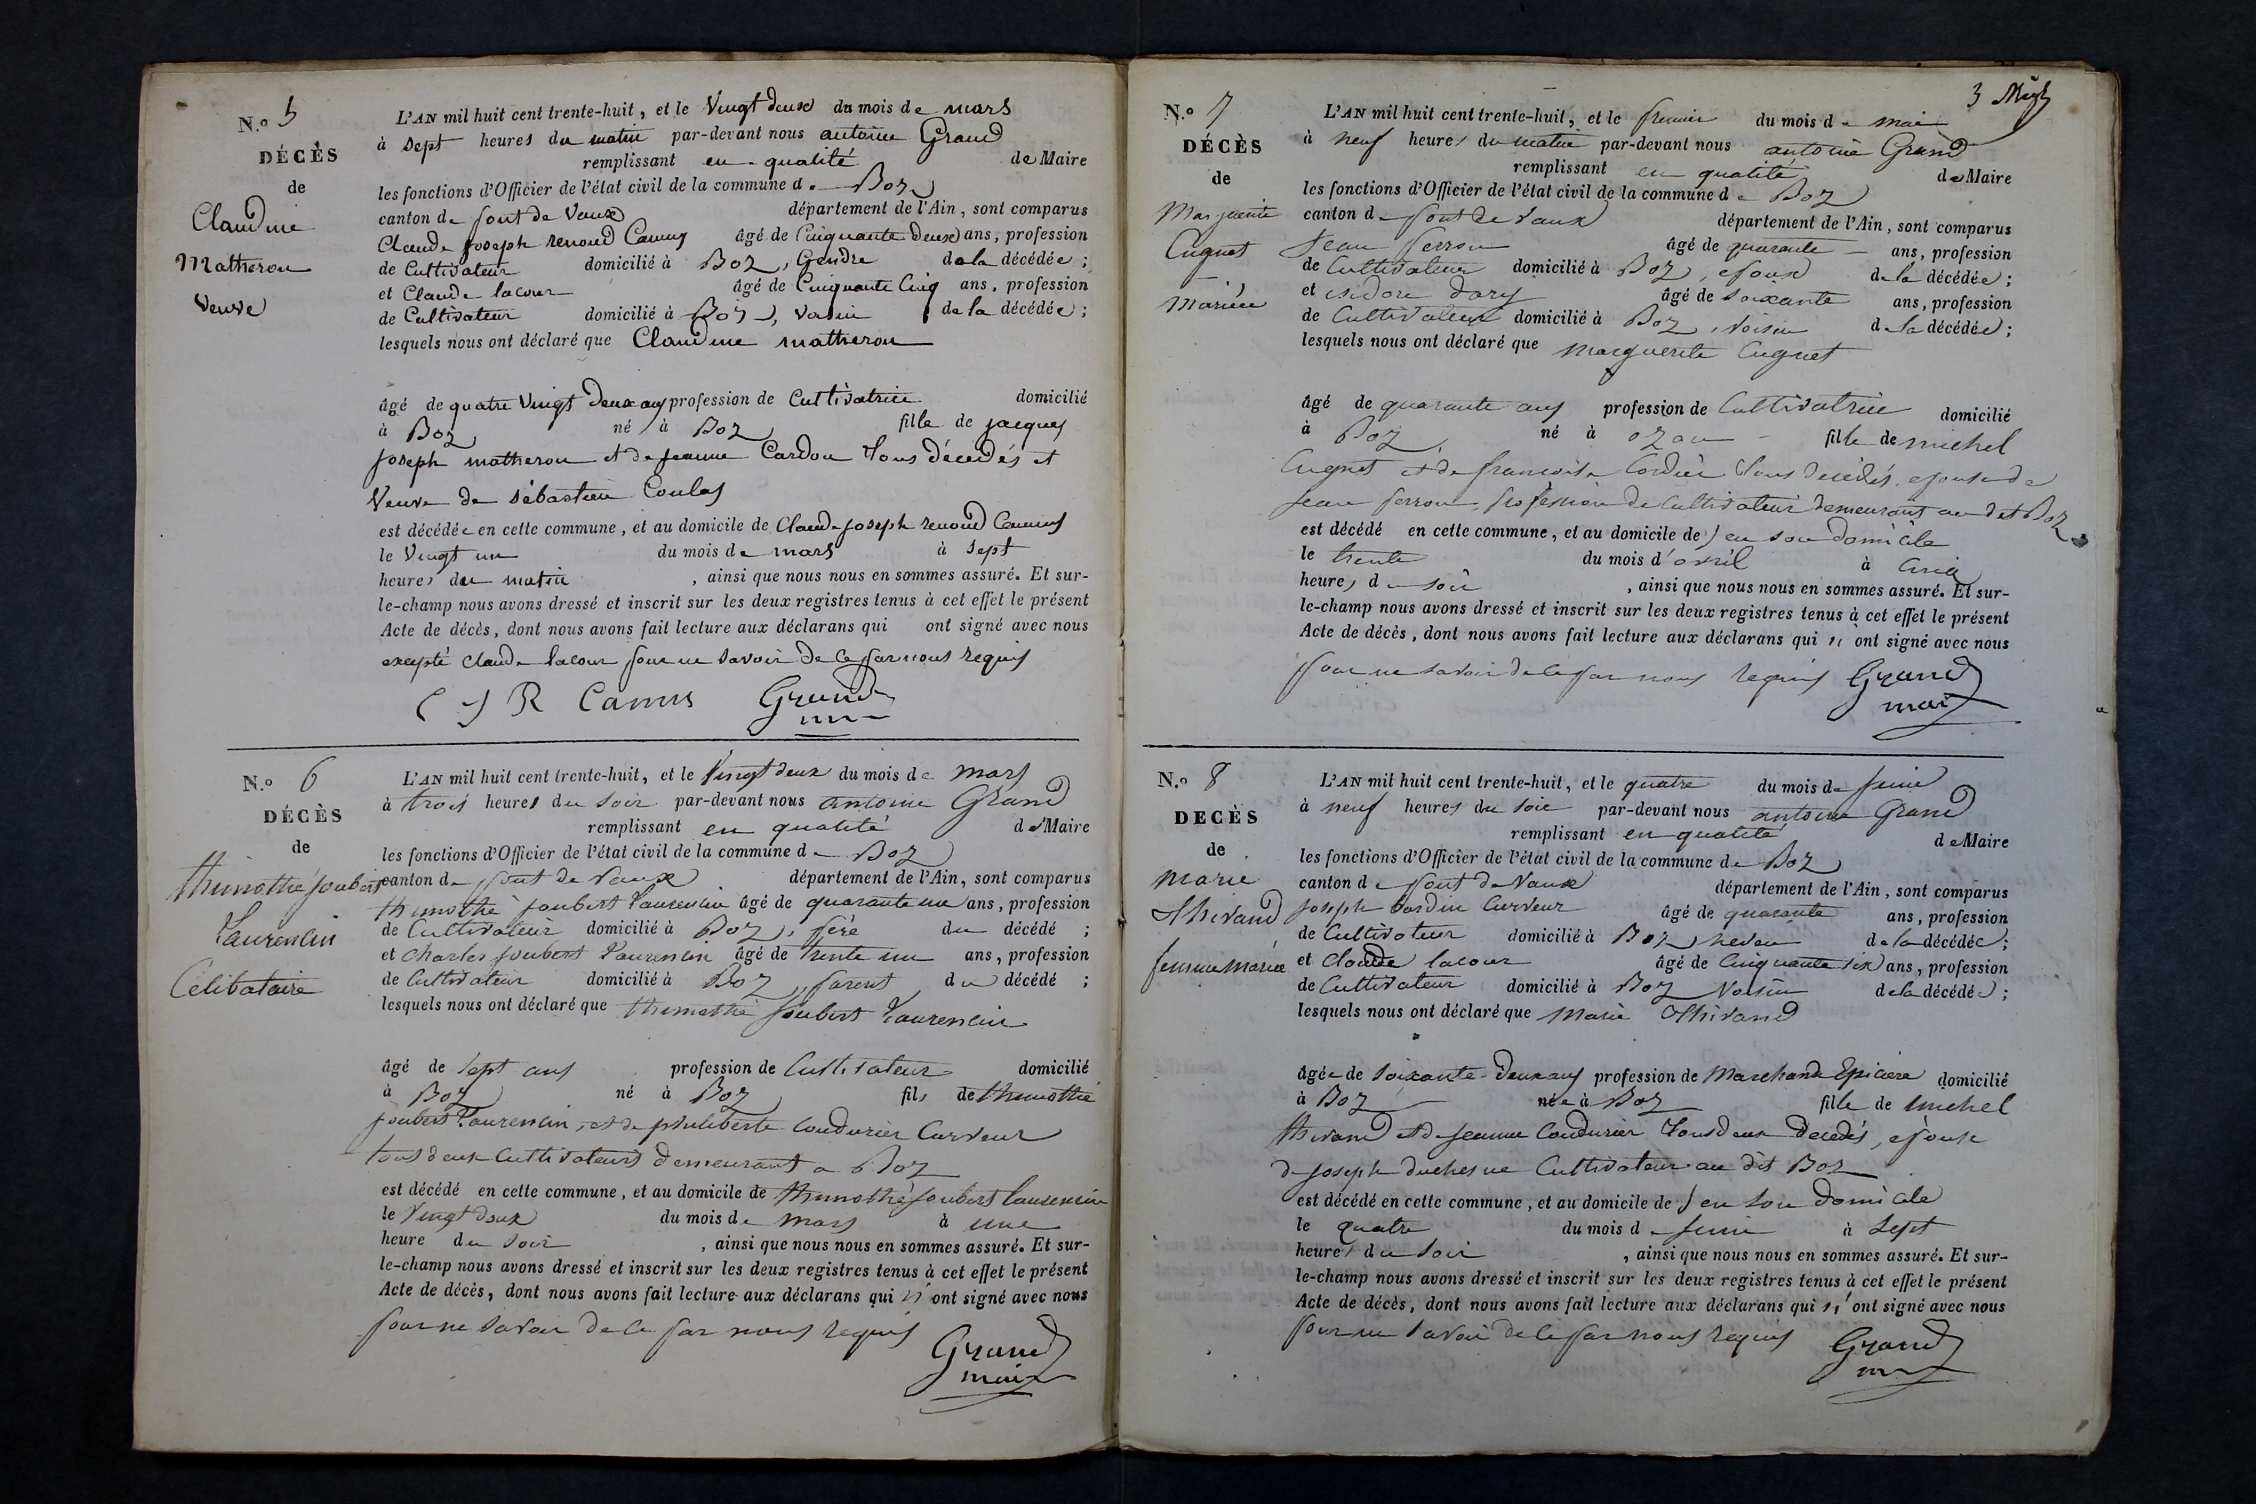 N.o 5
DÉCÈS
de
Claudine
Matheron
veuve
L'AN mil huit cent trente-huit, et le Vingt deux du mois de mars
à sept heures du matin par-devant nous antoine Grand
remplissant en qualité de Maire
les fonctions d'Officier de l'état civil de la commune de Boz
canton de pont de Vaux département de l'Ain, sont comparus
Claude joseph renoud Camus âgé de Cinquante deux ans, profession
de Cultivateur domicilié à Boz, Gendre de la décédée ;
et Claude lacour âgé de Cinquante Cinq ans, profession
de Cultivateur domicilié à Boz, voisin de la décédée ;
lesquels nous ont déclaré que Claudine matheron
âgé de quatre Vingt deux ans profession de Cultivatrice domicilié
à Boz né à Boz fille de jacques
joseph matheron et de jeanne Cardon tous décédés et
Veuve de sébastien Coulas
est décédée en cette commune, et au domicile de Claude joseph renoud Camus
le Vingt un du mois de mars à sept
heures du matin , ainsi que nous nous en sommes assuré. Et sur-
le-champ nous avons dressé et inscrit sur les deux registres tenus à cet effet le présent
Acte de décès, dont nous avons fait lecture aux déclarans qui ont signé avec nous
excepté claude lacour pour ne savoir de ce par nous requis
C J R Camus Grand
N.o 6
DÉCÈS
de
thimothé joubert
Laurencin
Célibataire
L'AN mil huit cent trente-huit, et le Vingt deux du mois de mars
à trois heures du soir par-devant nous antoine Grand
remplissant en qualité de Maire
les fonctions d'Officier de l'état civil de la commune de Boz
canton de pont de Vaux département de l'Ain, sont comparus
thimothé joubert Laurencin âgé de quarante un ans, profession
de Cultivateur domicilié à Boz, père du décédé ;
et charles joubert Laurencin âgé de trente un ans, profession
de Cultivateur domicilié à Boz, parent du décédé ;
lesquels nous ont déclaré que thimothé joubert Laurencin
âgé de sept ans profession de Cultivateur domicilié
à Boz né à Boz fils de thimothé
joubert Laurencin, et de philiberte Condurier Curveur
tous deux Cultivateurs demeurant a Boz
est décédé en cette commune, et au domicile de thimothé joubert laurencin
le Vingt deux du mois de mars à une
heure du soir , ainsi que nous nous en sommes assuré. Et sur-
le-champ nous avons dressé et inscrit sur les deux registres tenus à cet effet le présent
Acte de décès, dont nous avons fait lecture aux déclarans qui n'ont signé avec nous
pour ne savoir de ce par nous requis
Grand
maire
3
N.o 7
DÉCÈS
de
Marguerite
Cugnet
Mariée
L'AN mil huit cent trente-huit, et le premier du mois de mai
à neuf heures du matin par-devant nous antoine Grand
remplissant en qualité de Maire
les fonctions d'Officier de l'état civil de la commune de Boz
canton de pont de vaux département de l'Ain, sont comparus
Jean ferron âgé de quarante ans, profession
de Cultivateur domicilié à Boz, epoux de la décédée ;
et isidore dory âgé de soixante ans, profession
de Cultivateur domicilié à Boz, voisin de la décédée ;
lesquels nous ont déclaré que marguerite Cugnet
âgé de quarante ans profession de Cultivatrice domicilié
à Boz né à ozan fille de michel
Cugnet et de francoise Cordier tous décédés, epouse de
Jean ferron, profession de Cultivateur demeurant au dit Boz
est décédé en cette commune, et au domicile de en son domicile
le trente du mois d'avril à Cinq
heures de soir , ainsi que nous nous en sommes assuré. Et sur-
le-champ nous avons dressé et inscrit sur les deux registres tenus à cet effet le présent
Acte de décès, dont nous avons fait lecture aux déclarans qui n'ont signé avec nous
pour ne savoir de ce par nous requis Grand
maire
N.o 8
DECÈS
de
marie
Thivand
femme mariée
L'AN mil huit cent trente-huit, et le quatre du mois de juin
à neuf heures du soir par-devant nous antoine Grand
remplissant en qualité de Maire
les fonctions d'Officier de l'état civil de la commune de Boz
canton de pont de Vaux département de l'Ain, sont comparus
joseph bardin Curveur âgé de quarante ans, profession
de Cultivateur domicilié à Boz neveu de la décédée ;
et Claude lacour âgé de Cinquante six ans, profession
de Cultivateur domicilié à Boz voisin de la décédée ;
lesquels nous ont déclaré que marie Thivand
âgée de soixante-deux ans profession de Marchande Epiciere domicilié
à Boz née à Boz fille de michel
thivand et de jeanne Condurier tous deux décédés, epouse
de joseph duchesne Cultivateur au dit Boz
est décédé en cette commune, et au domicile de en son domicile
le quatre du mois de juin à sept
heures du soir , ainsi que nous nous en sommes assuré. Et sur-
le-champ nous avons dressé et inscrit sur les deux registres tenus à cet effet le présent
Acte de décès, dont nous avons fait lecture aux déclarans qui n'ont signé avec nous
pour ne savoir de ce par nous requis Grand